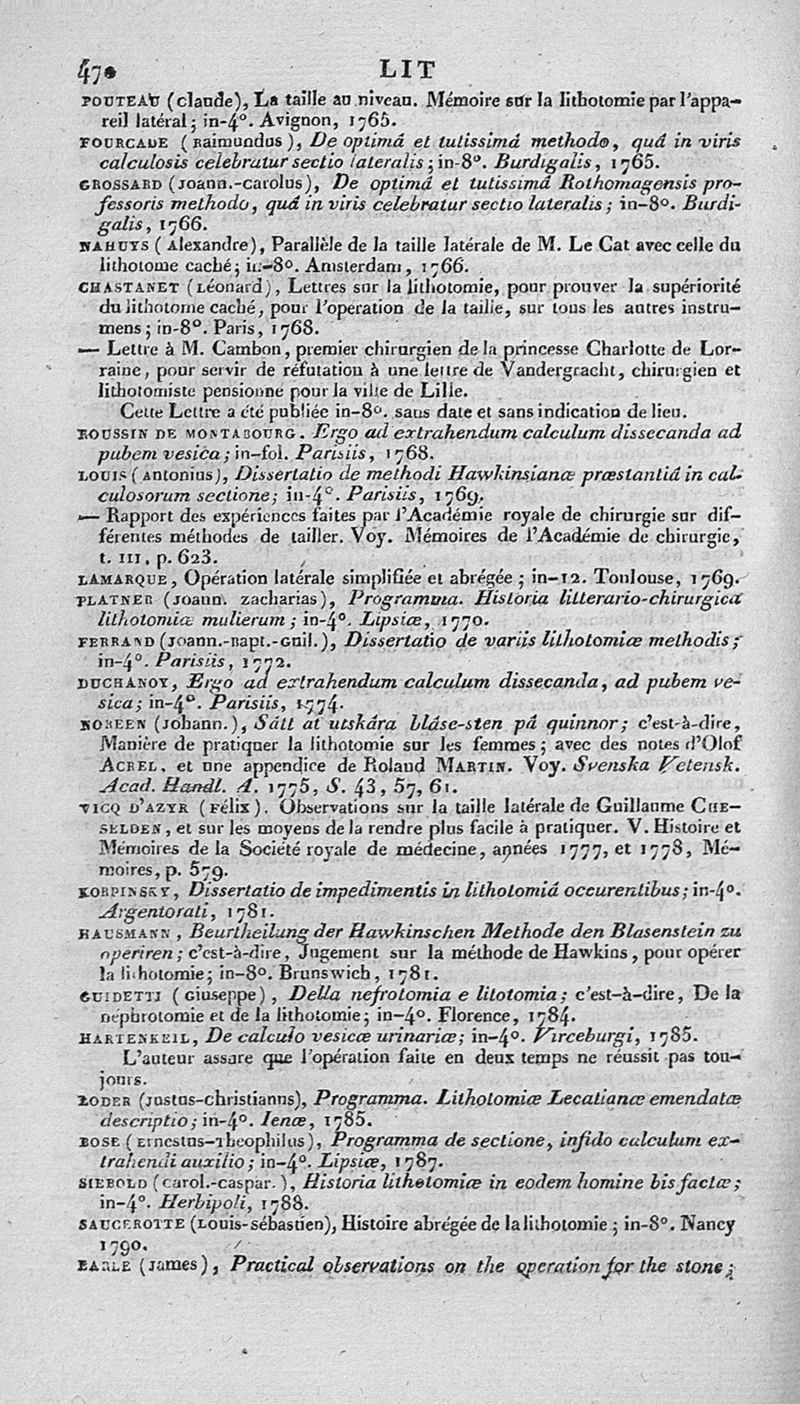 470 LIT
POUTEAU (claude), La taille au niveau. Mémoire sur la lithotomie par l'appa-
reil latéral; in-4°. Avignon, 1765.
FOURCADE (Raimundus), De optimá et tutissimá methodo, quá in viris
calculosis celebratur sectio lateralis; in-8°. Burdigalis, 1765.
GROSSARD (Joann.-Carolus), De optimá et tutissimá Rothomagensis pro-
fessoris methodo, quá in viris celebratur sectio lateralis; in-8°. Burdi-
galis, 1766.
NAHUYS (Alexandre), Parallèle de la taille latérale de M. Le Cat avec celle du
lithotome caché; in-8°. Amsterdam, 1766.
CHASTANET (Léonard), Lettres sur la lithotomie, pour prouver la supériorité
du lithotome caché, pour l'opération de la taille, sur tous les autres instru-
mens; in-8°. Paris, 1768.
— Lettre à M. Cambon, premier chirurgien de la princesse Charlotte de Lor-
raine, pour servir de réfutation à une lettre de Vandergracht, chirurgien et
lithotomiste pensionné pour la ville de Lille.
Cette Lettre a été publiée in-8°. sans date et sans indication de lieu.
ROUSSIN DE MONTABOURG. Ergo ad extrahendum calculum dissecanda ad
pubem vesica; in-fol. Parisiis, 1768.
LOUIS (Antonius), Dissertatio de methodi Hawkinsianæ præstantiá in cal-
culosorum sectione; in-4°. Parisiis, 1769.
— Rapport des expériences faites par l'Académie royale de chirurgie sur dif-
férentes méthodes de tailler. Voy. Mémoires de l'Académie de chirurgie,
t. III, p. 623.
LAMARQUE, Opération latérale simplifiée et abrégée; in-12. Toulouse, 1769.
PLATNER (Joann. zacharias), Programma. Historia litterario-chirurgica
lithotomiæ mulierum; in-4°. Lipsiæ, 1770.
FERRAND (Joann.-Bapt.-Guil.), Dissertatio de variis lithotomiæ methodis;
in-4°. Parisiis, 1772.
DUCHANOY, Ergo ad extrahendum calculum dissecanda, ad pubem ve-
sica; in-4°. Parisiis, 1774.
NOREEN (Johann.), Sátt at utskára bláse-sten pá quinnor; c'est-à-dire,
Manière de pratiquer la lithotomie sur les femmes; avec des notes d'Olof
ACREL, et une appendice de Roland MARTIN. Voy. Svenska Vetensk.
Acad. Handl. A. 1775, S. 43, 57, 61.
VICQ D'AZYR (Félix). Observations sur la taille latérale de Guillaume CHE-
SELDEN, et sur les moyens de la rendre plus facile à pratiquer. V. Histoire et
Mémoires de la Société royale de médecine, années 1777, et 1778, Mé-
moires, p. 579.
KORPINSKY, Dissertatio de impedimentis in lithotomiá occurentibus; in-4°.
Argentorati, 1781.
HAUSMANN, Beurtheilung der Hawkinschen Methode den Blasenstein zu
operiren; c'est-à-dire, Jugement sur la méthode de Hawkins, pour opérer
la lithotomie; in-8°. Brunswich, 1781.
GUIDETTI (Giuseppe), Della nefrotomia e litotomia; c'est-à-dire, De la
néphrotomie et de la lithotomie; in-4°. Florence, 1784.
HARTENKEIL, De calculo vesicæ urinariæ; in-4°. Virceburgi, 1785.
L'auteur assure que l'opération faite en deux temps ne réussit pas tou-
jours.
LODER (Justus-christianus), Programma. Lithotomiæ Lecatianæ emendatæ
descriptio; in-4°. Ienæ, 1785.
BOSE (Ernestus-Theophilus), Programma de sectione, infido calculum ex-
trahendi auxilio; in-4°. Lipsiæ, 1787.
SIEBOLD (carol.-caspar.), Historia lithotomiæ in eodem homine bis factæ;
in-4°. Herbipoli, 1788.
SAUCEROTTE (Louis-sébastien), Histoire abrégée de la lithotomie; in-8°. Nancy
1790.
EARLE (James), Practical observations on the operation for the stone;